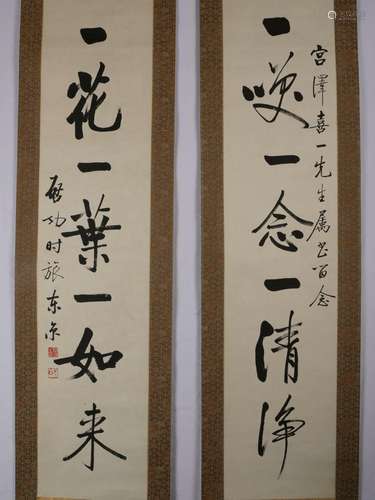 一咲一念一清淨
宮澤喜一先生属书留念
一花一葉一如来
啟功时旅东京